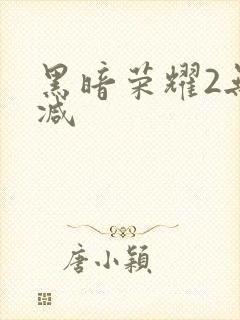 黑暗荣耀2无
减
唐小颖